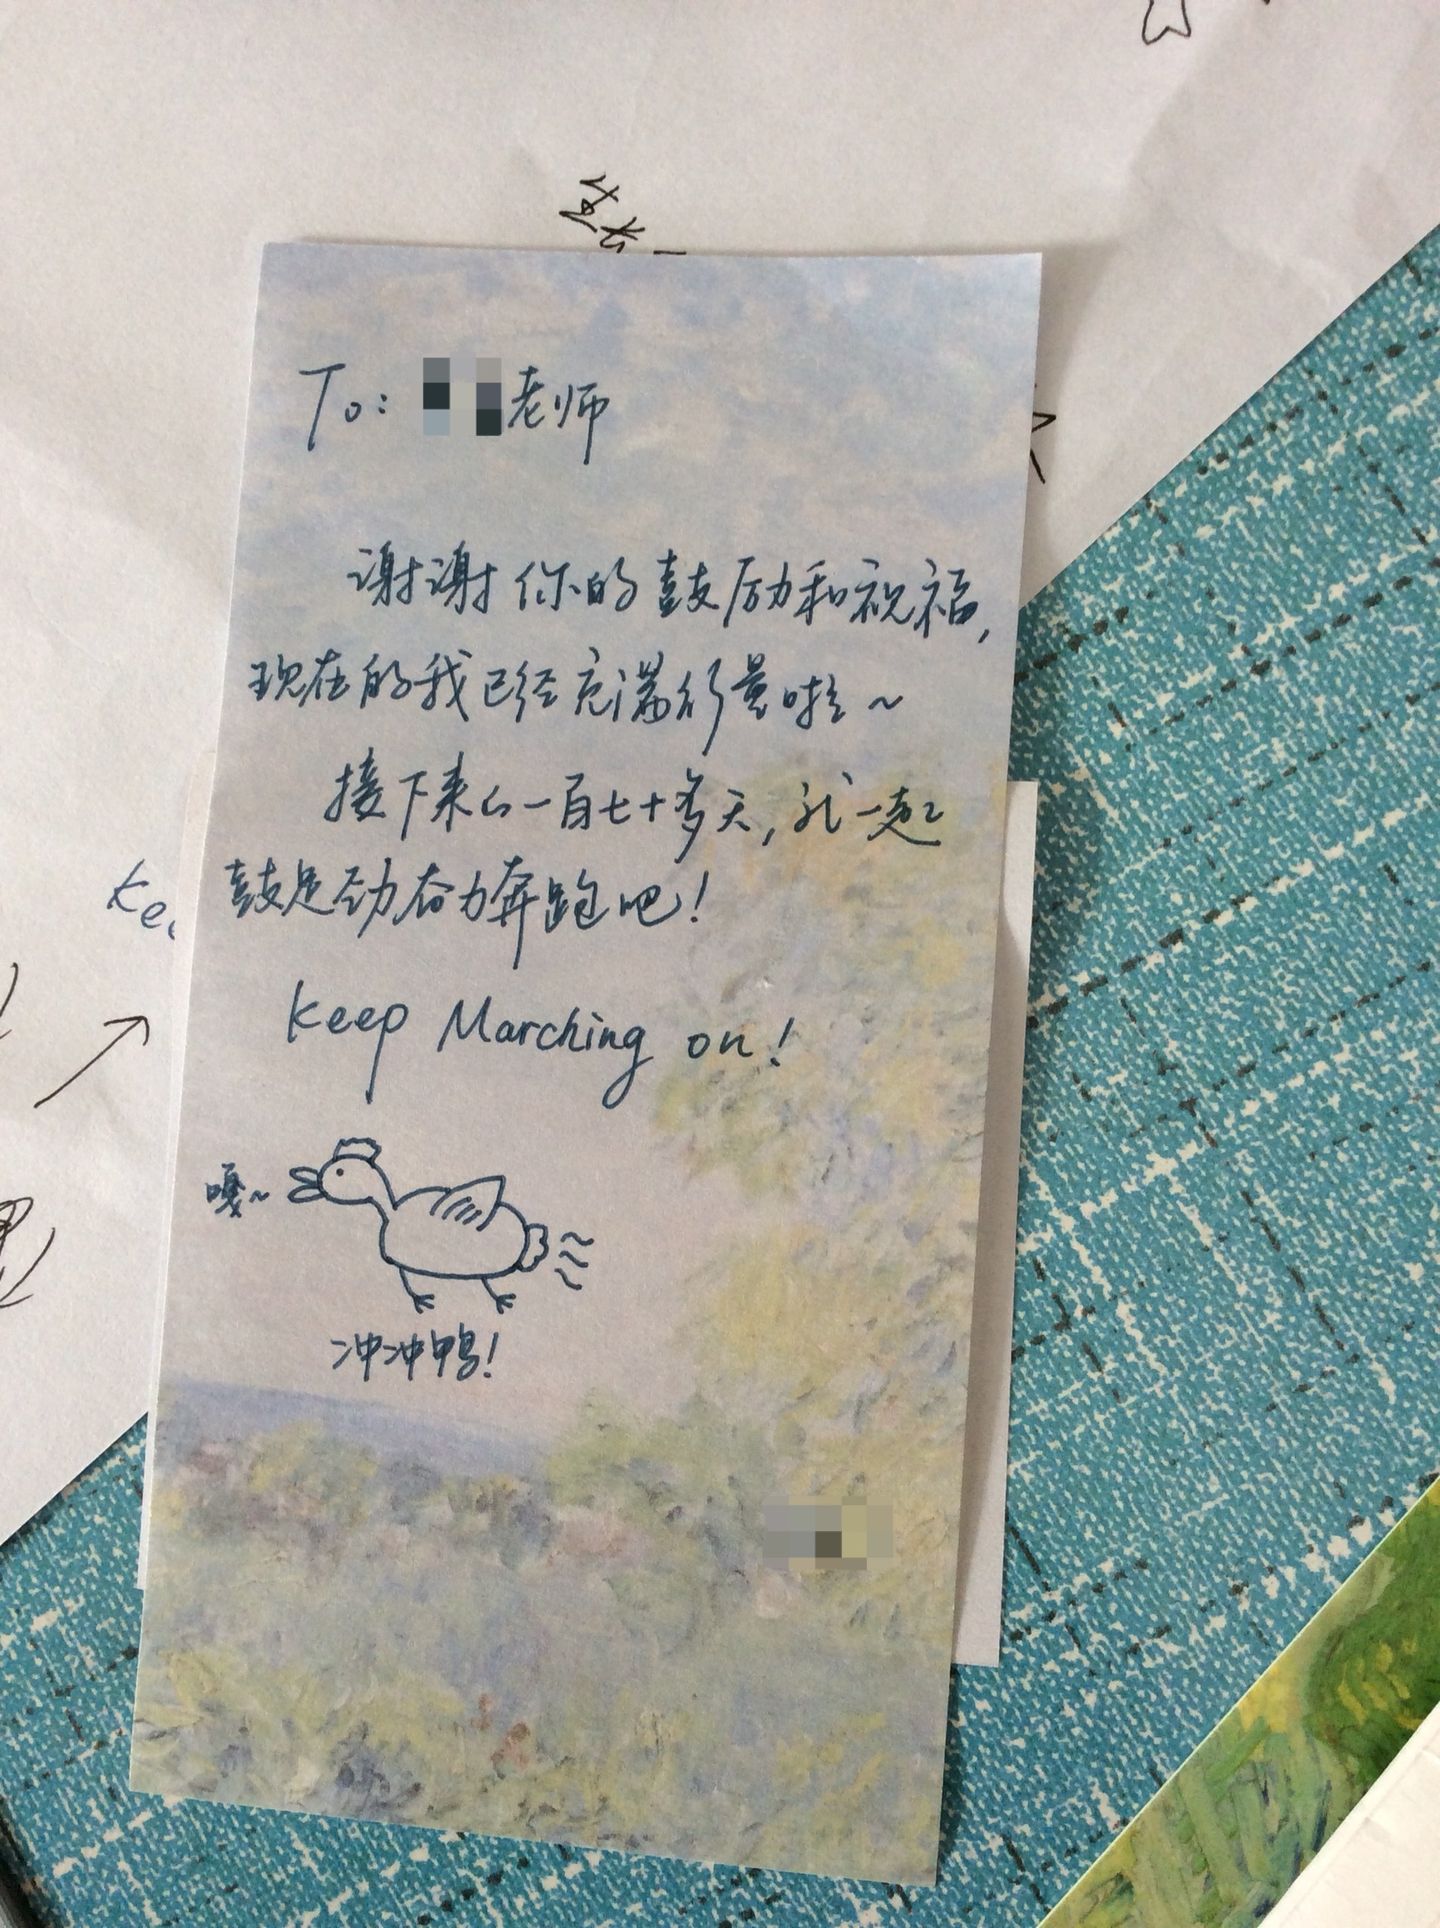 To: 老师
谢谢你的鼓励和祝福,
现在的我已经充满能量啦~
接下来的一百七十多天, 一起
鼓足劲奋力奔跑吧!
Keep Marching on!
嘎~
冲冲鸭!